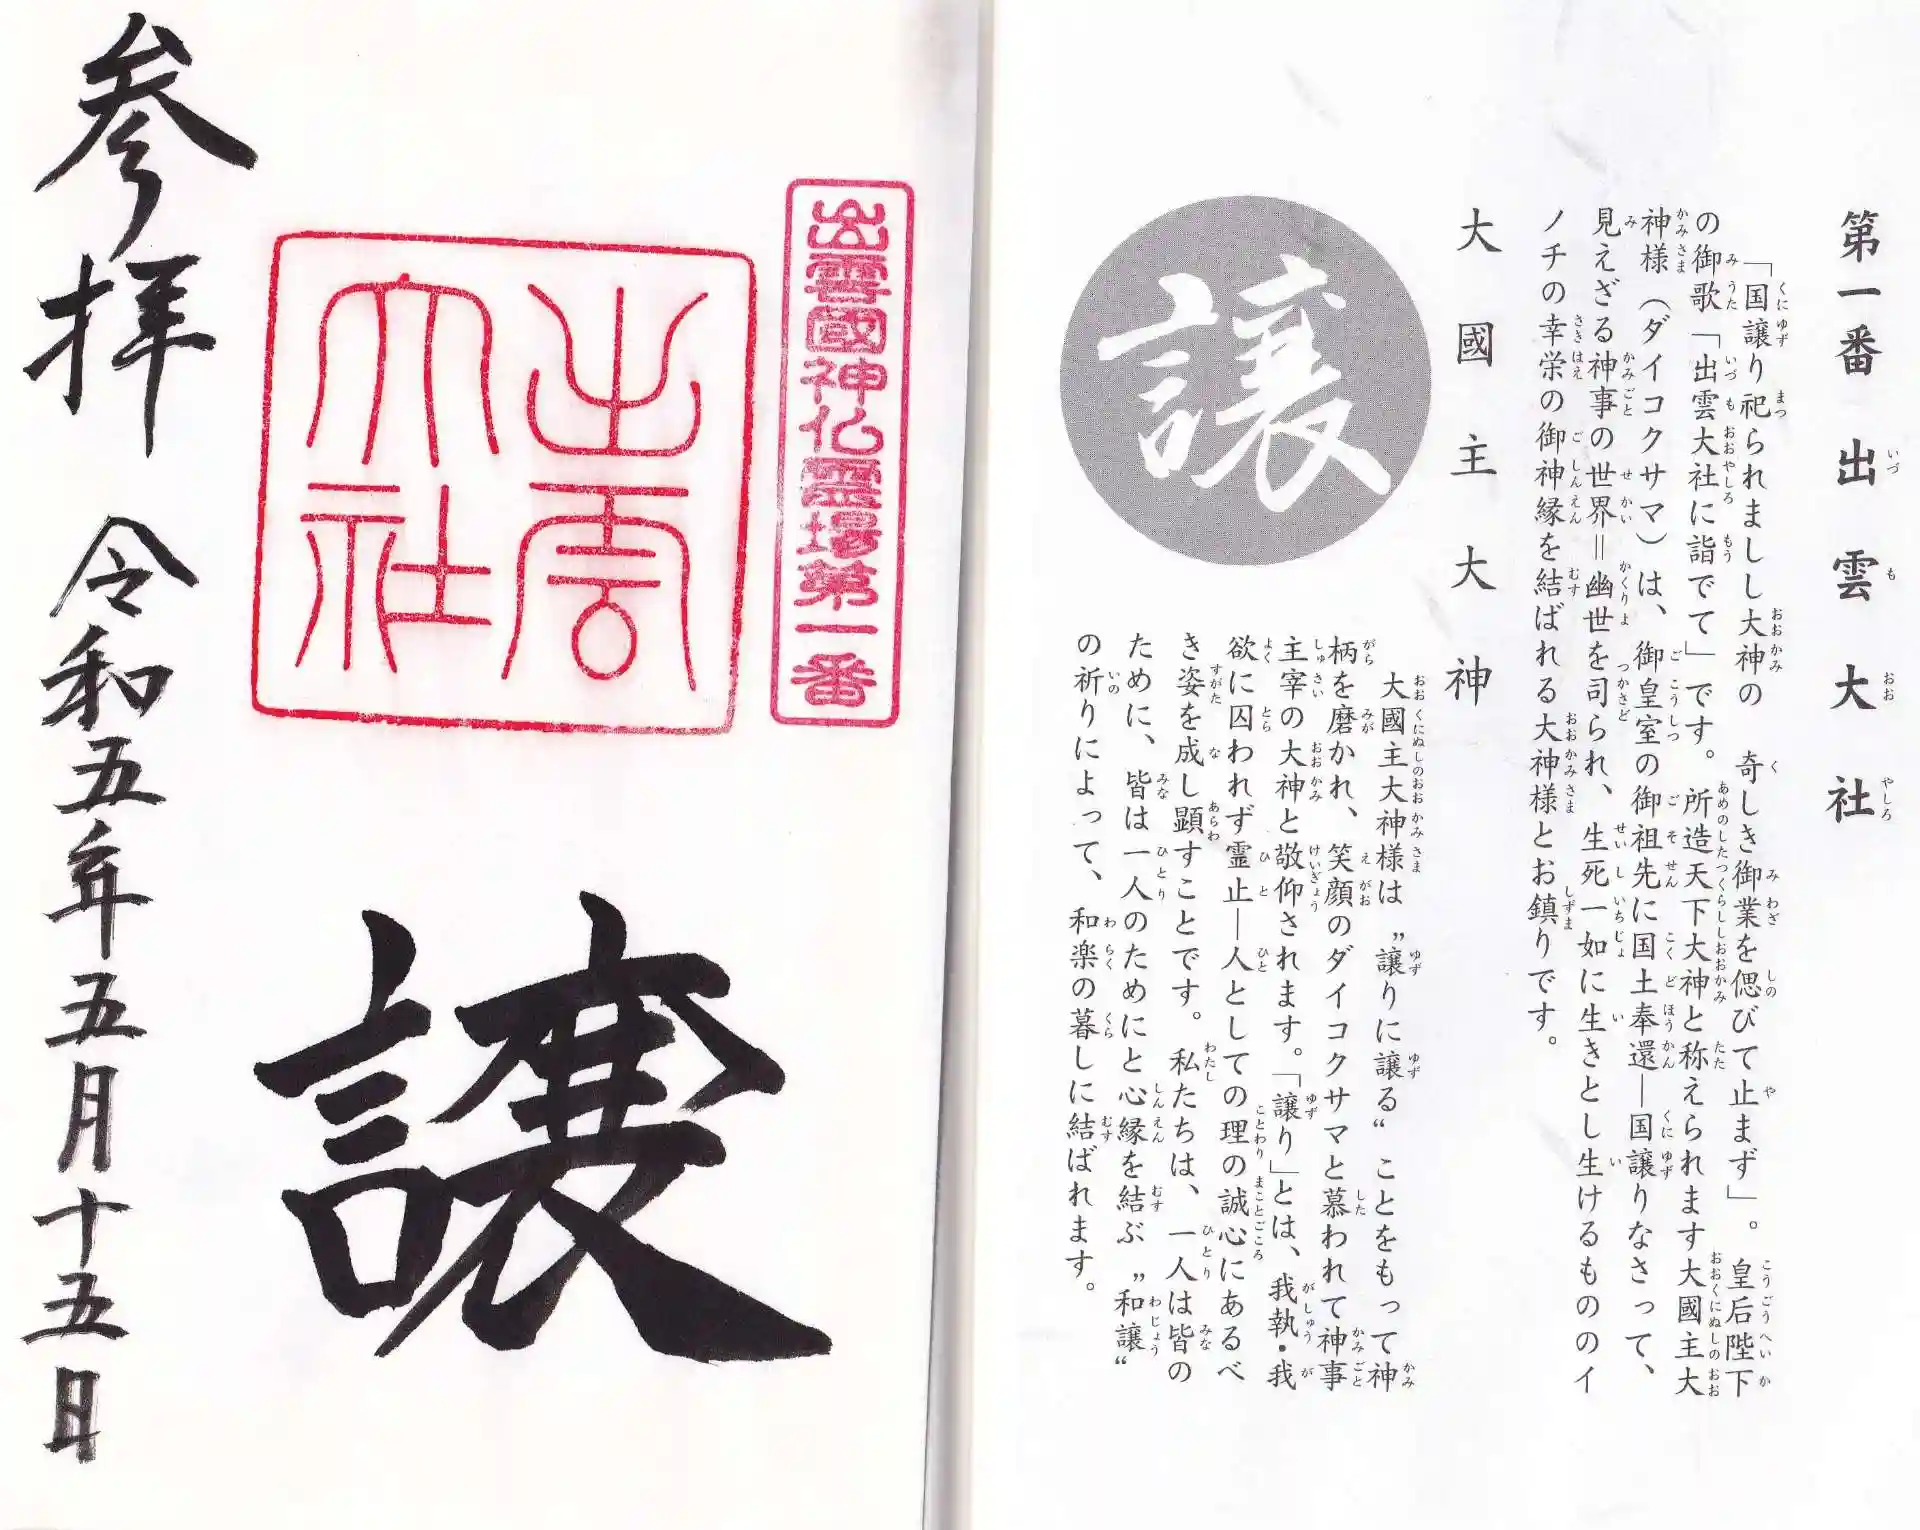 第一番 出雲大社
大國主大神
譲
「国譲り祀られましし大神の 奇しき御業を偲びて止まず」。皇后陛下
の御歌「出雲大社に詣でて」です。所造天下大神と称えられます大國主大
神様（ダイコクサマ）は、御皇室の御祖先に国土奉還―国譲りなさって、
見えざる神事の世界＝幽世を司られ、生死一如に生きとし生けるもののイ
ノチの幸栄の御神縁を結ばれる大神様とお鎮りです。
大國主大神様は〝譲りに譲る〟ことをもって神
柄を磨かれ、笑顔のダイコクサマと慕われて神事
主宰の大神と敬仰されます。「譲り」とは、我執・我
欲に囚われず霊止―人としての理の誠心にあるべ
き姿を成し顕すことです。私たちは、一人は皆の
ために、皆は一人のためにと心縁を結ぶ〝和譲〟
の祈りによって、和楽の暮しに結ばれます。
出雲國神仏霊場第一番
出雲
大社
譲
参拝 令和五年五月十五日